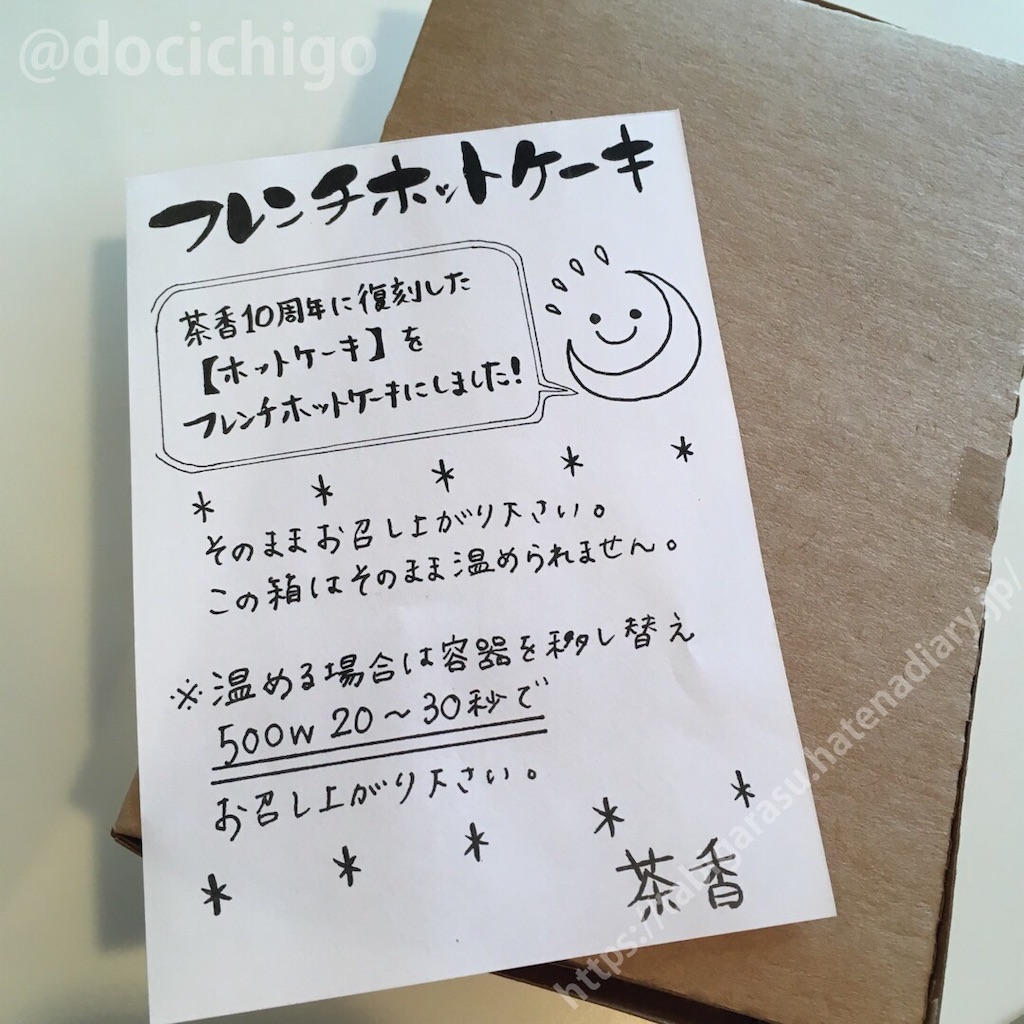 @docichigo
フレンチホットケーキ
茶香10周年に復刻した
【ホットケーキ】を
フレンチホットケーキにしました!
* * * * *
そのままお召し上がり下さい。
この箱はそのまま温められません。
※温める場合は容器を移し替え
500W 20〜30秒で
お召し上がり下さい。
* * * * *
茶香